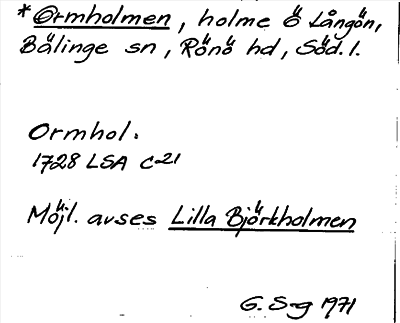 * Ormholmen, holme Ö Långön,
Bälinge sn, Rönö hd, Söd. l.
Ormhol.
1728 LSA C21
Möjl. avses Lilla Björkholmen
G. S-g 1971